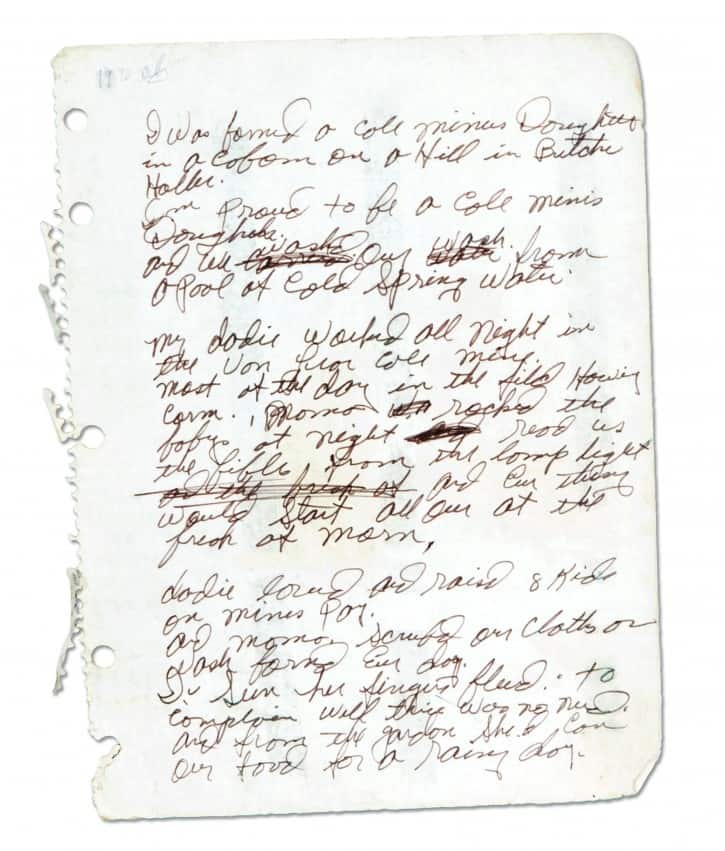 I was borned a cole minus Doughtter
in a cobom on a Hill in Butcher
Holler.
I'm proud to be a Cole minis
Doughter.
and we wash our wash from
a pool of Cold Spring Water.
my dadie worked all night in
the Von lear Cole mine.
most of the day in the filed Howing
Corn. momo rocked the
babys at night read us
the bible from the lomp light
and the break of and ever thing
would start all over at the
break of morn,
dadie loved and raised 8 Kids
on minis Pay.
and momo scrubed our cloths on
wash bord Ever day.
I've seen her fingers bleed. to
Complain well there was no need.
and from the garden she'd Can
our food for a rainy day.